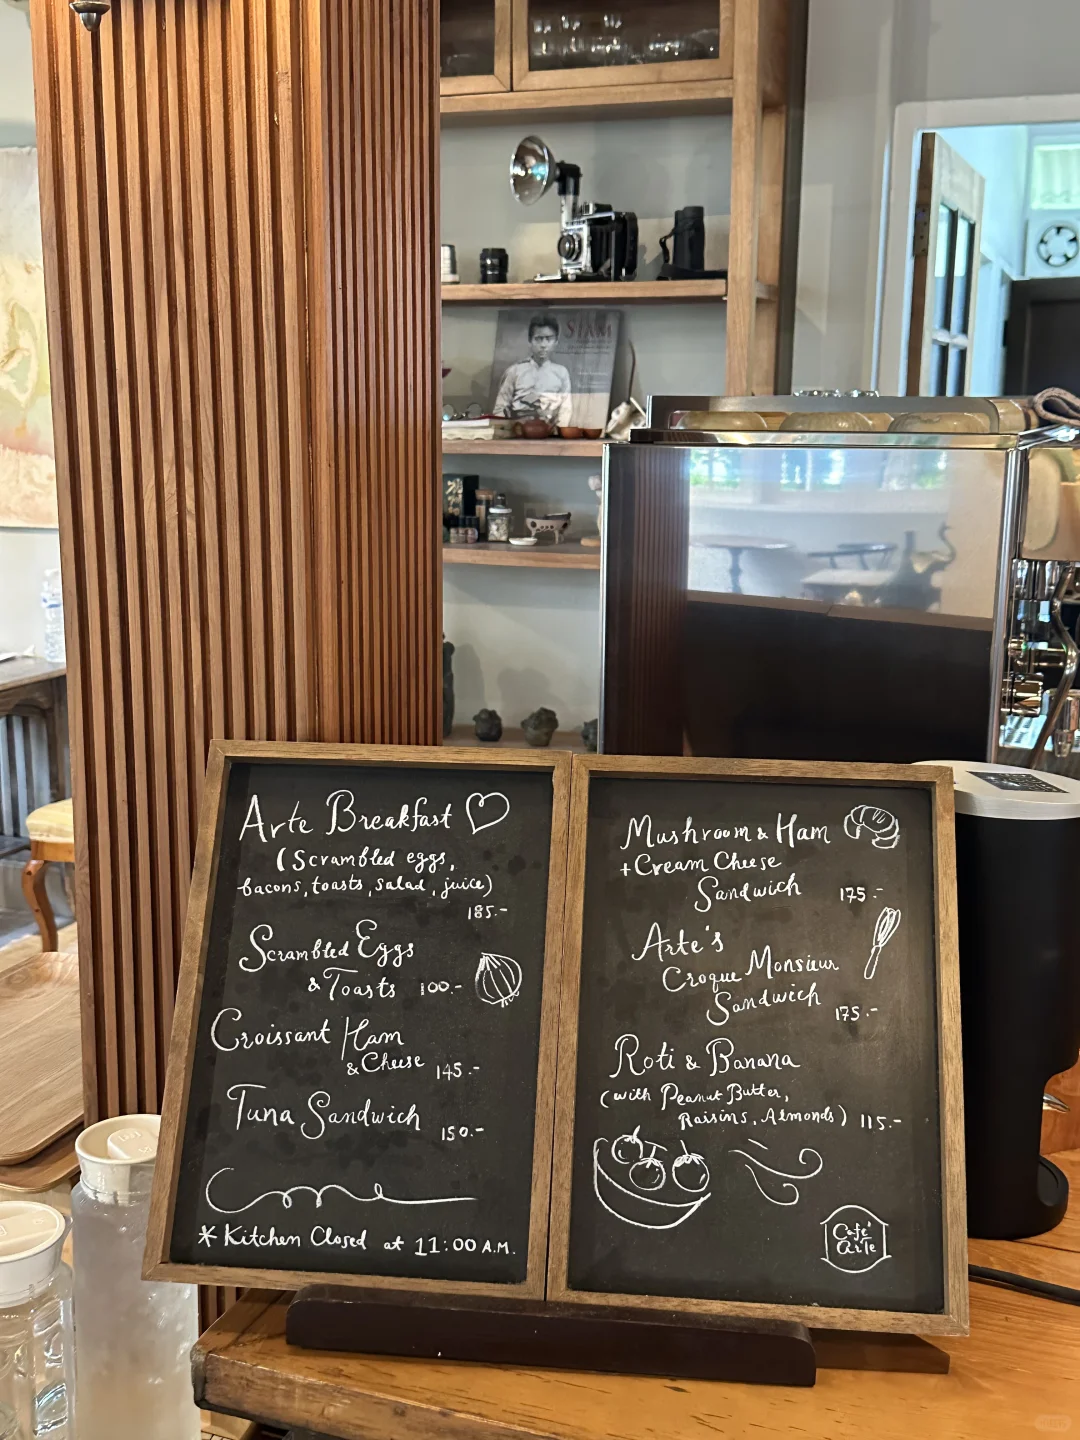 SIAM
Arte Breakfast
(Scrambled eggs,
bacons, toasts, salad, juice)
185.-
Scrambled Eggs
& Toasts 100.-
Croissant Ham
& Cheese 145.-
Tuna Sandwich
150.-
* Kitchen Closed at 11:00 A.M.
Mushroom & Ham
+ Cream Cheese
Sandwich 175.-
Arte's
Croque Monsieur
Sandwich
175.-
Roti & Banana
(with Peanut Butter,
Raisins, Almonds) 115.-
Café
Arte